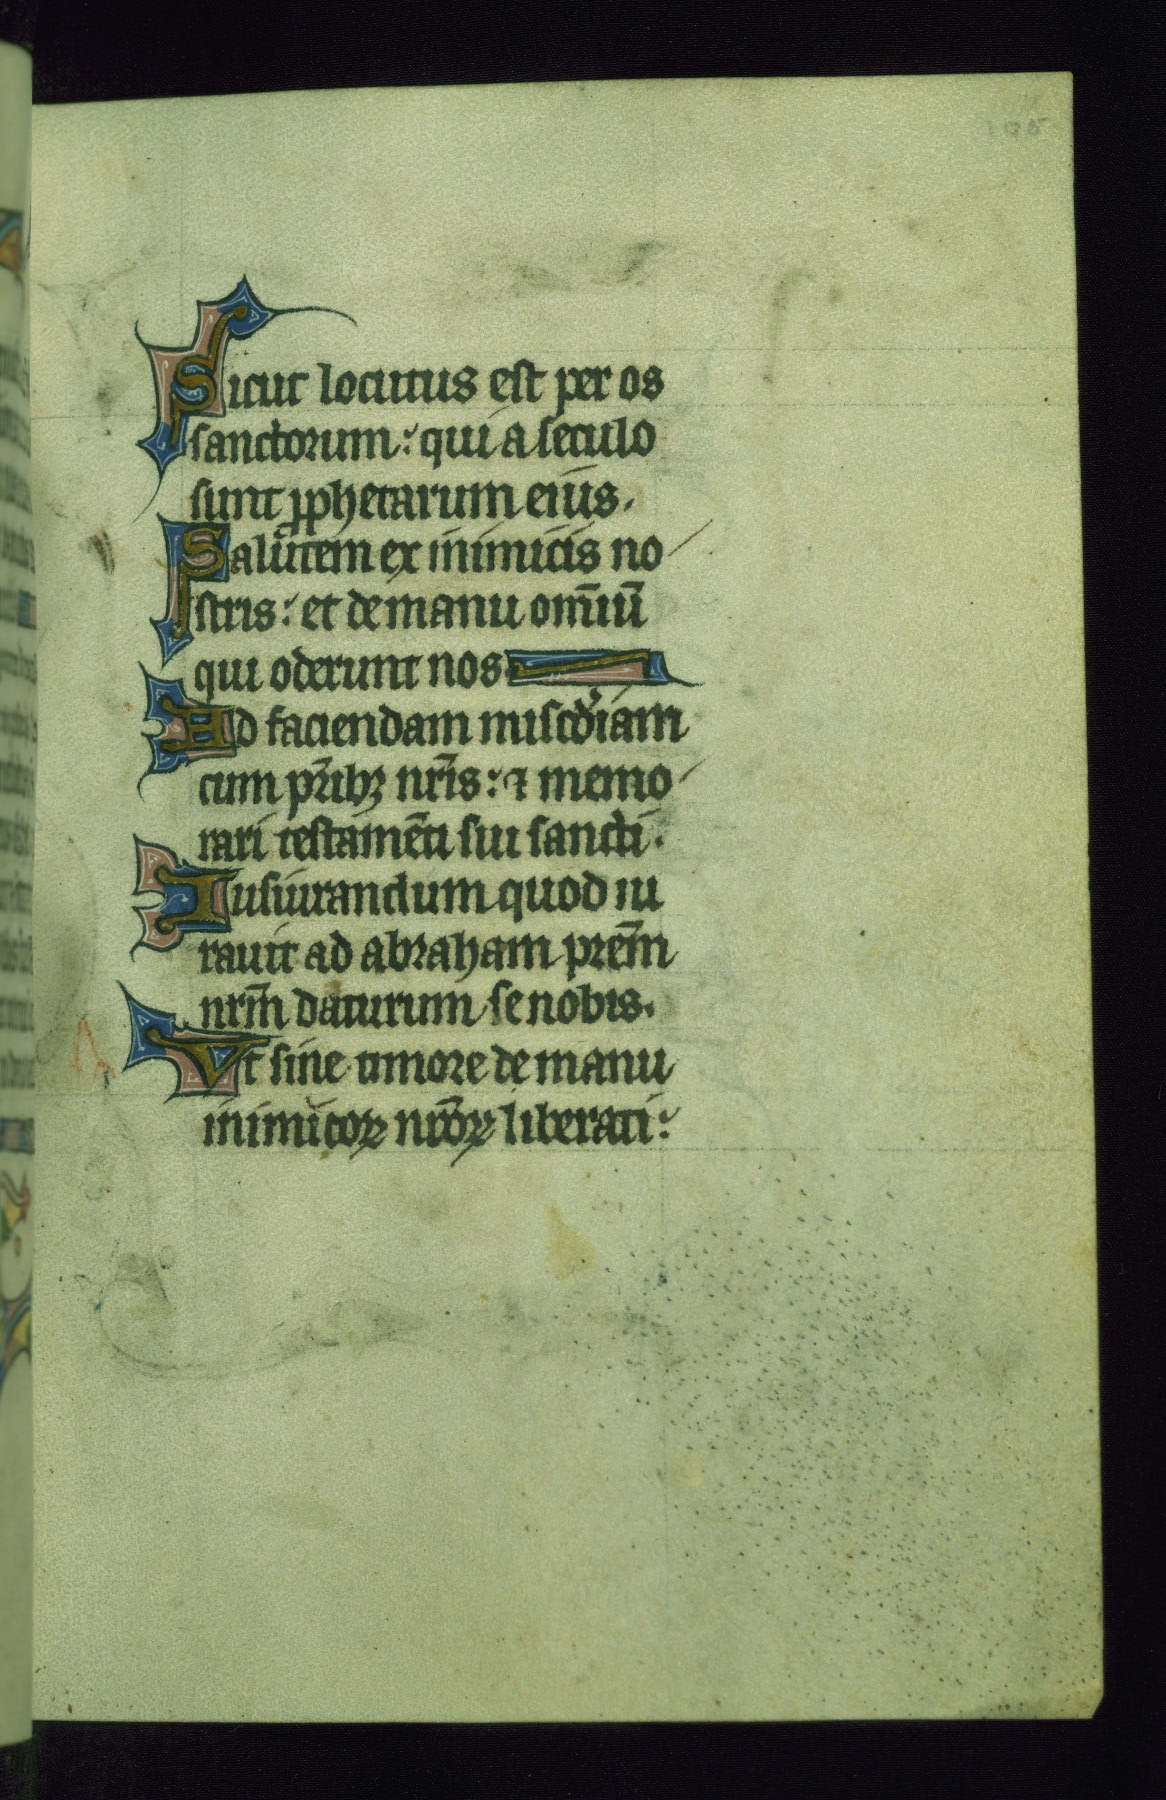 105
Sicut locutus est per os
sanctorum: qui a seculo
sunt ꝓphetarum eius.
Salutem ex inimicis no
stris: et de manu om̄iū
qui oderunt nos
Ad faciendam miscd̓iam
cum pr̄ibꝫ nr̄is: ⁊ memo
rari testamēti sui sancti.
Iusiurandum quod iu
rauit ad abraham prem̄
nrm̄ daturum se nobis.
Vt sine timore de manu
inimicoꝝ nr̄oꝝ liberati: